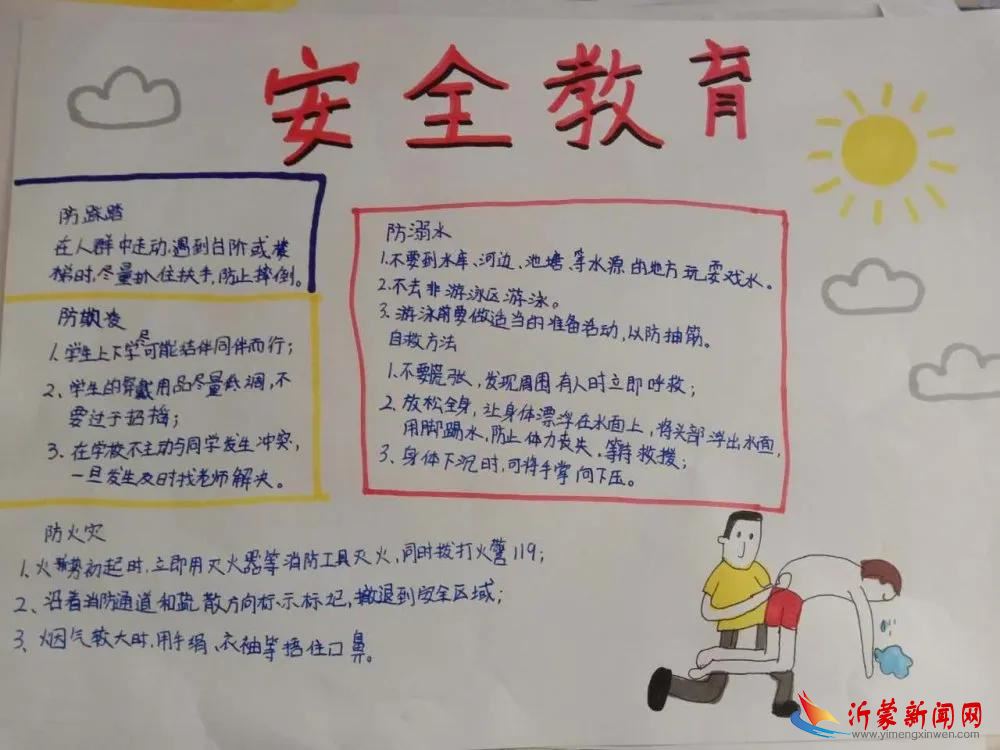 安全教育
防踩踏
在人群中走动,遇到台阶或楼
梯时,尽量扒住扶手,防止摔倒。
防欺凌
1.学生上下学尽可能结伴同伴而行;
2、学生的穿戴用品尽量低调,不
要过于招摇;
3、在学校不主动与同学发生冲突,
一旦发生及时找老师解决。
防溺水
1.不要到水库、河边、池塘、等水源的地方玩耍戏水。
2.不去非游泳区游泳。
3.游泳前要做适当的准备活动,以防抽筋。
自救方法
1.不要慌张,发现周围有人时立即呼救;
2、放松全身,让身体漂浮在水面上,将头部浮出水面,
用脚踢水,防止体力丧失,等待救援;
3、身体下沉时,可将手掌向下压。
防火灾
1、火势初起时,立即用灭火器等消防工具灭火,同时拨打火警119;
2、沿着消防通道和疏散方向标示标记,撤退到安全区域;
3、烟气较大时,用手绢、衣袖等捂住口鼻。
沂蒙新闻网
www.yimengxinwen.com